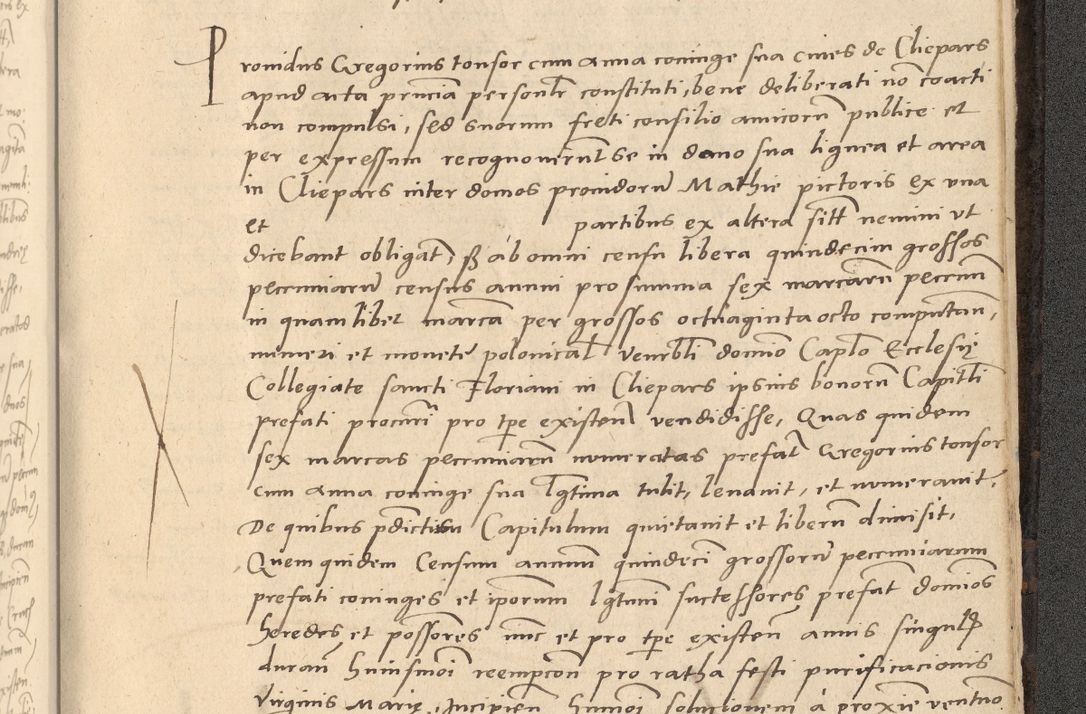 Prouidus Gregorius tonsor cum anna coniuge sua ciues de Cliepars
apud acta pñcia personlr constituti, bene deliberati nõ coacti
non compulsi, sed suorum freti consilio amicorũ publice et
per expressum recognouerũt se in domo sua lignea et area
in Cliepars inter domos prouidorũ Mathie pictoris ex vna
et partibus ex altera sitt nemini vt
dicebant obligat, sʒ ab omni censu libera quindecim grossos
pecuniarũ census annui pro summa sex marcarũ pecuniã
in quamlibet marcã per grossos octuaginta octo computan,
numeri et monete polonical venerbli domio Caplo Ecclesię
Collegiate sancti Floriani in Cliepars ipsius bonorũ Capitli
prefati procuri pro tpe existen vendidisse, Quas quidem
sex marcas pecuniarũ numeratas prefat Gregorius tonsor
cum anna coniuge sua lgtima tulit, leuauit, et numerauit,
De quibus pdictum Capitulum quietauit et liberũ dimisit,
Quem quidem Censum annuũ quindeci grossorũ pecuniarum
prefati coniuges et iporum lgtimi successores prefat domios
heredes et possores nũc et pro tpe existen annis singulis
duran huiusmoi reempcon pro ratha festi purificacionis
virginis Marię, Incipien humoi solucionem á proxie ventuo